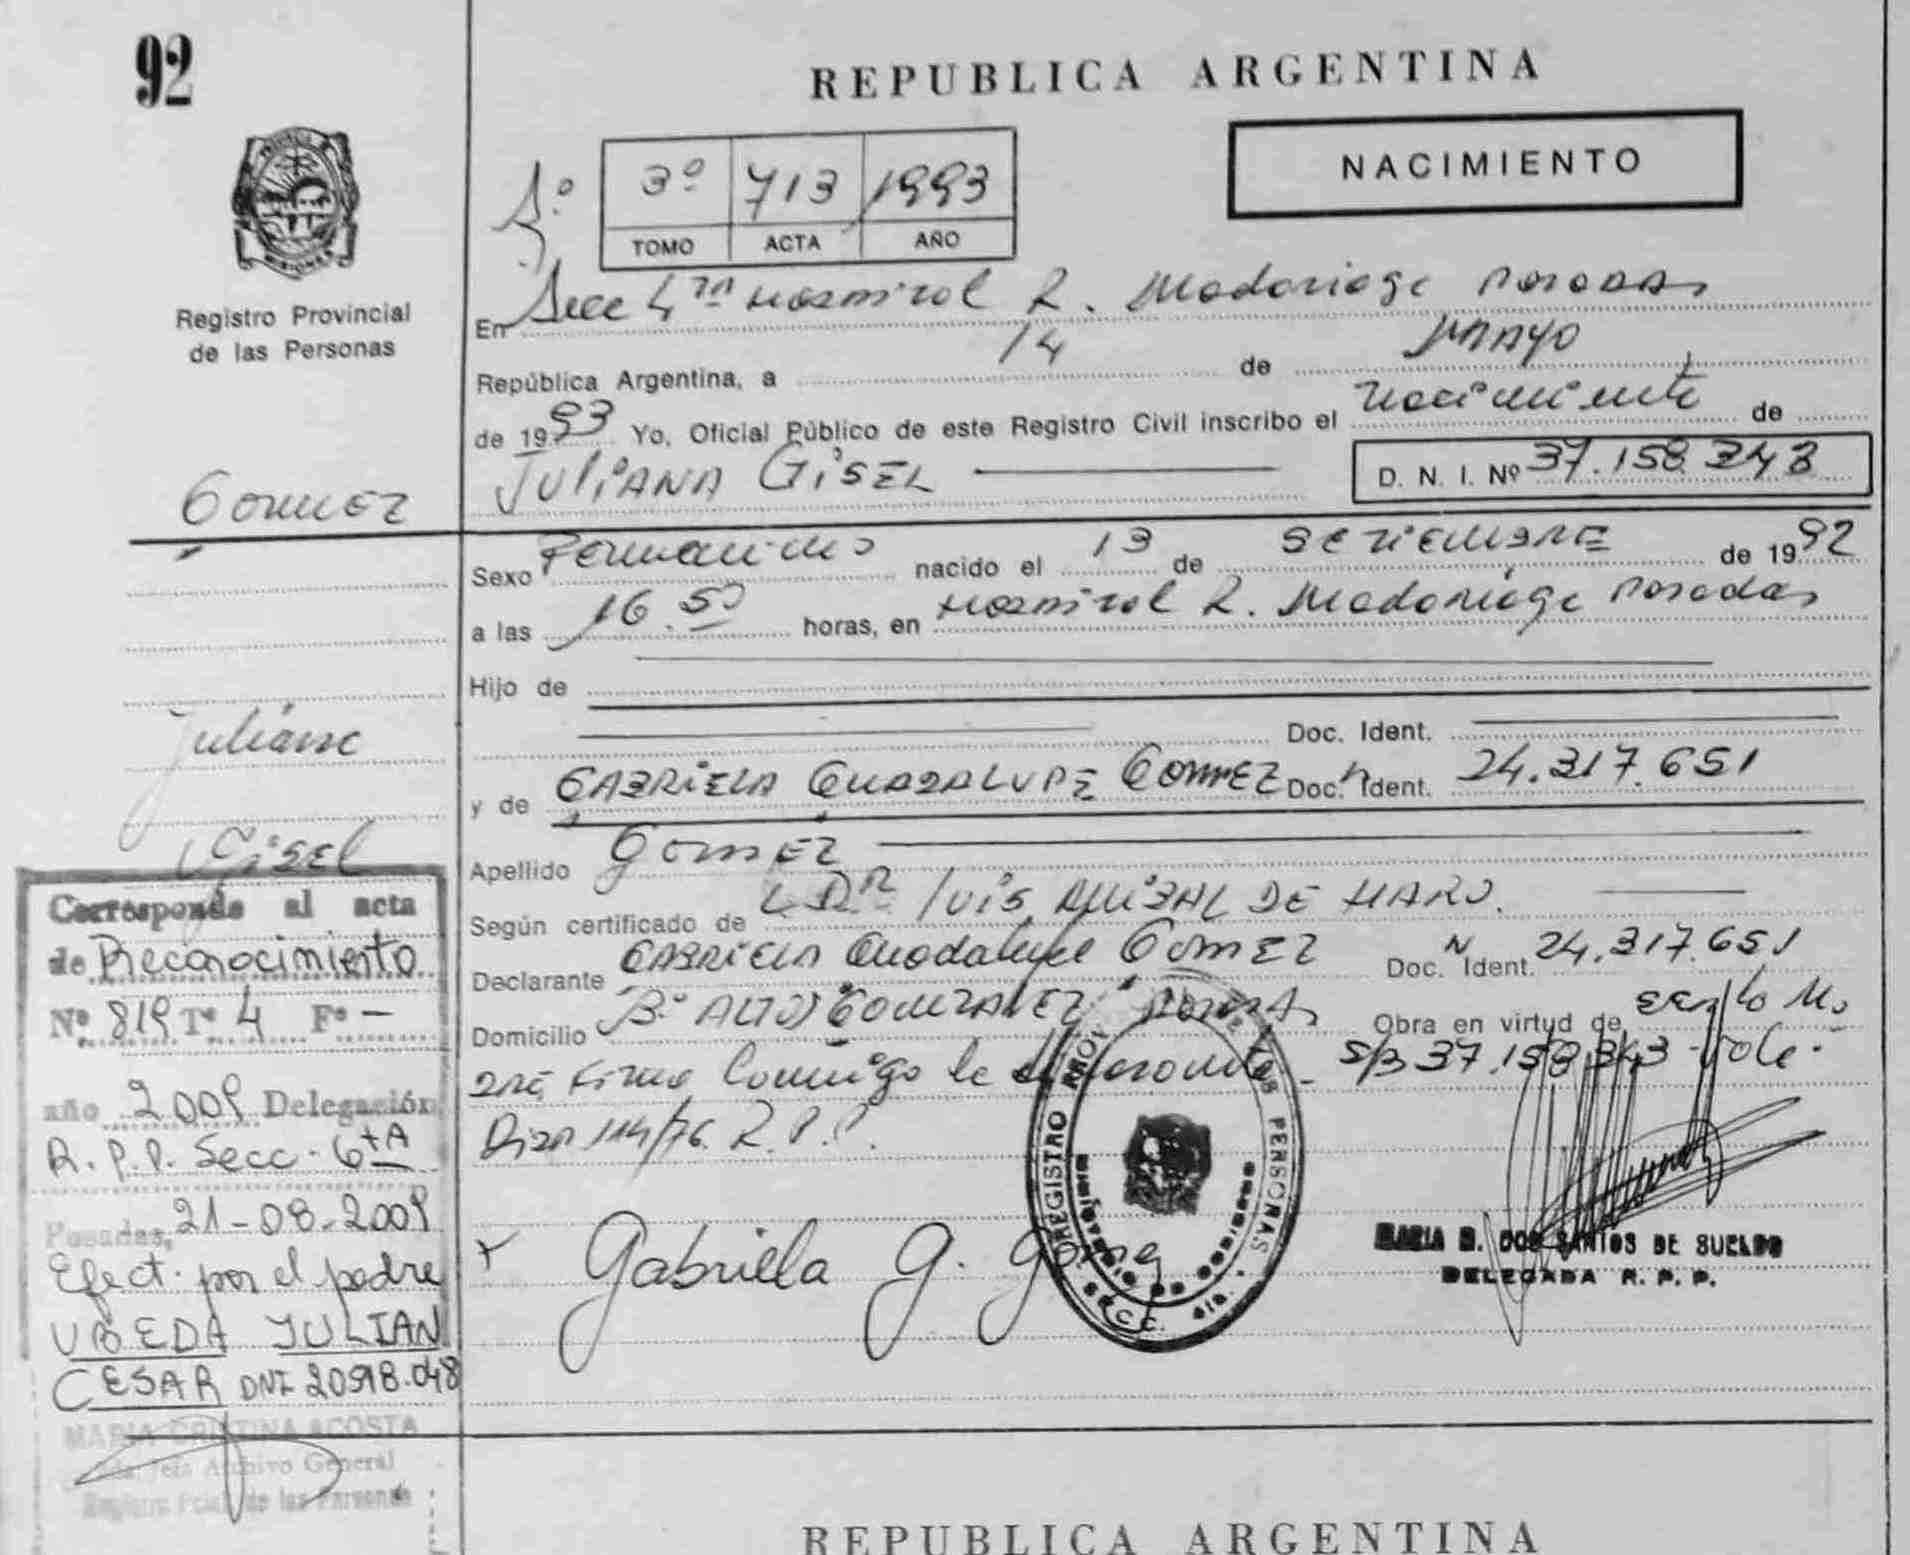 92
REPUBLICA ARGENTINA
NACIMIENTO
3º 713 1993
TOMO ACTA AÑO
Registro Provincial
de las Personas
En Secc 4ta Hospital R. Madariaga Posadas
República Argentina, a 14 de Mayo
de 1993 Yo, Oficial Público de este Registro Civil inscribo el nacimiento de
JULIANA GISEL
D. N. I. Nº 37.158.343
Gomez
Sexo Femenino nacido el 13 de SETIEMBRE de 1992
a las 16.50 horas, en Hospital R. Madariaga Posadas
Hijo de
Doc. Ident.
y de GABRIELA GUADALUPE GOMEZ Doc. N Ident. 24.317.651
Juliana
Gisel
Apellido GOMEZ
Según certificado de L DR LUIS ANIBAL DE HARO.
Declarante GABRIELA Guadalupe GOMEZ Doc. N Ident. 24.317.651
Domicilio Bº ALTOS GONZALEZ Posadas Obra en virtud de ser la Ma
dre, firma conmigo S/B 37.158.343 Vale.
Disp 114/76. R.P.P.
Gabriela G. Gomez
REGISTRO PERSONAS
MARIA B. DOS SANTOS DE SUELDO
DELEGADA R. P. P.
Corresponde al acta
de Reconocimiento
Nº 819 Tº 4 Fº -
año 2009 Delegación
R.P.P. Secc. 6tA
Posadas, 21-08-2009
Efect. por el padre
UBEDA JULIAN
CESAR DNI 20.918.048
MARIA CRISTINA ACOSTA
Jefa Archivo General
Registro Pcial. de las Personas
REPUBLICA ARGENTINA